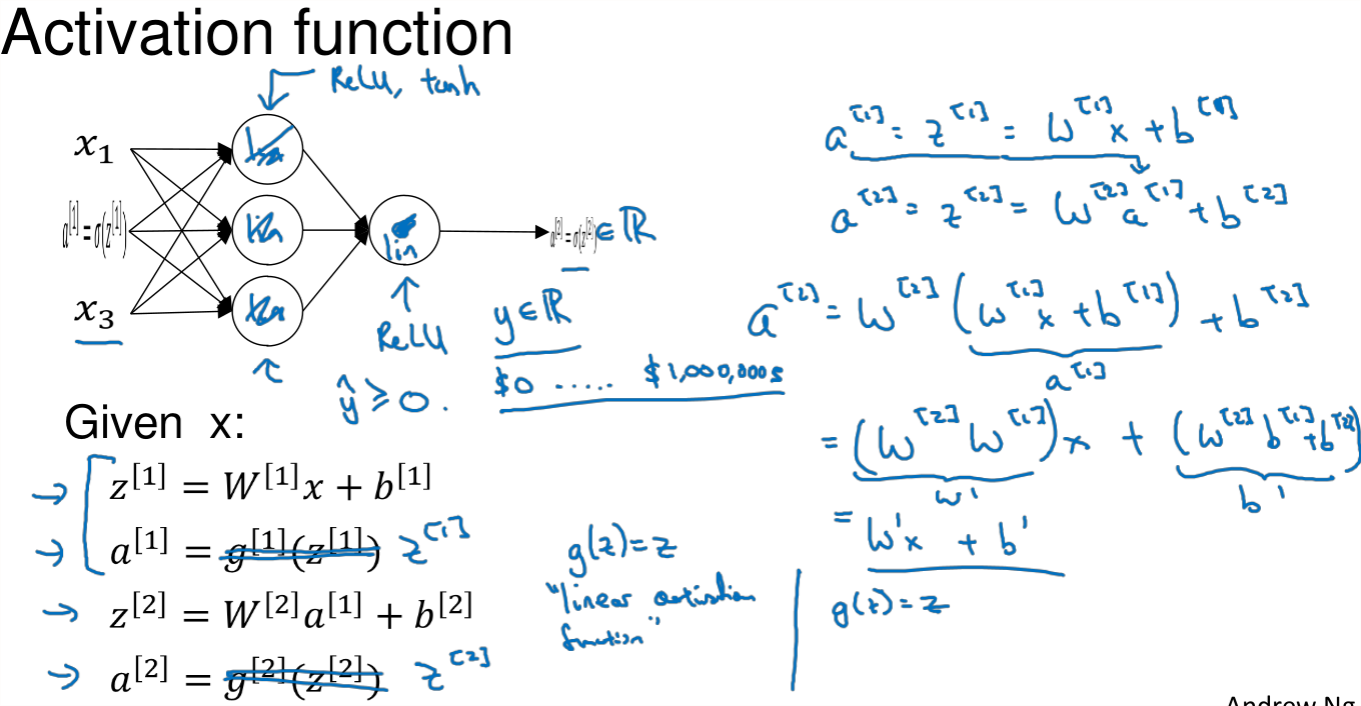 Activation function
ReLU, tanh
x₁
a^[1] = σ(z^[1])
x₃
lin
a^[2] = σ(z^[2]) ∈ ℝ
ReLU
ŷ ≥ 0.
y ∈ ℝ
$0 ..... $1,000,000
Given x:
→ z^[1] = W^[1]x + b^[1]
→ a^[1] = g^[1](z^[1]) z^[1]
→ z^[2] = W^[2]a^[1] + b^[2]
→ a^[2] = g^[2](z^[2]) z^[2]
g(z) = z
"linear activation
function"
a^[1] = z^[1] = W^[1] x + b^[1]
a^[2] = z^[2] = W^[2] a^[1] + b^[2]
a^[2] = W^[2] (W^[1] x + b^[1]) + b^[2]
a^[1]
= (W^[2] W^[1]) x + (W^[2] b^[1] + b^[2])
W' b'
= W'x + b'
g(z) = z
Andrew Ng